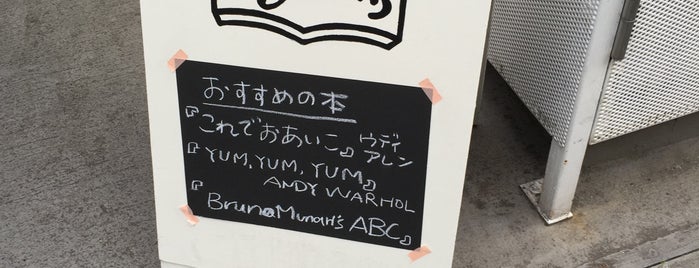 おすすめの本
『これでおあいこ』ウディ
アレン
『YUM, YUM, YUM』
ANDY WARHOL
『Bruno Munari's ABC』